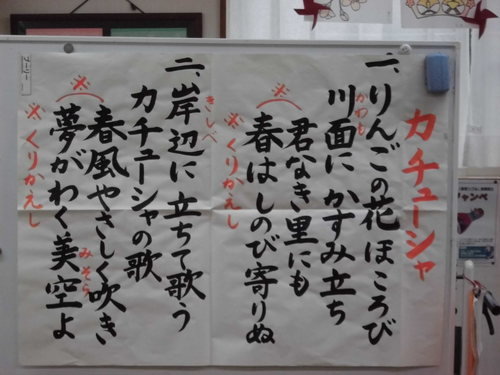 カチューシャ
一、りんごの花ほころび
かわも
川面にかすみ立ち
※
君なき里にも
春はしのび寄りぬ
※くりかえし
きしべ
二、岸辺に立ちて歌う
カチューシャの歌
※
春風やさしく吹き
みそら
夢がわく美空よ
※くりかえし